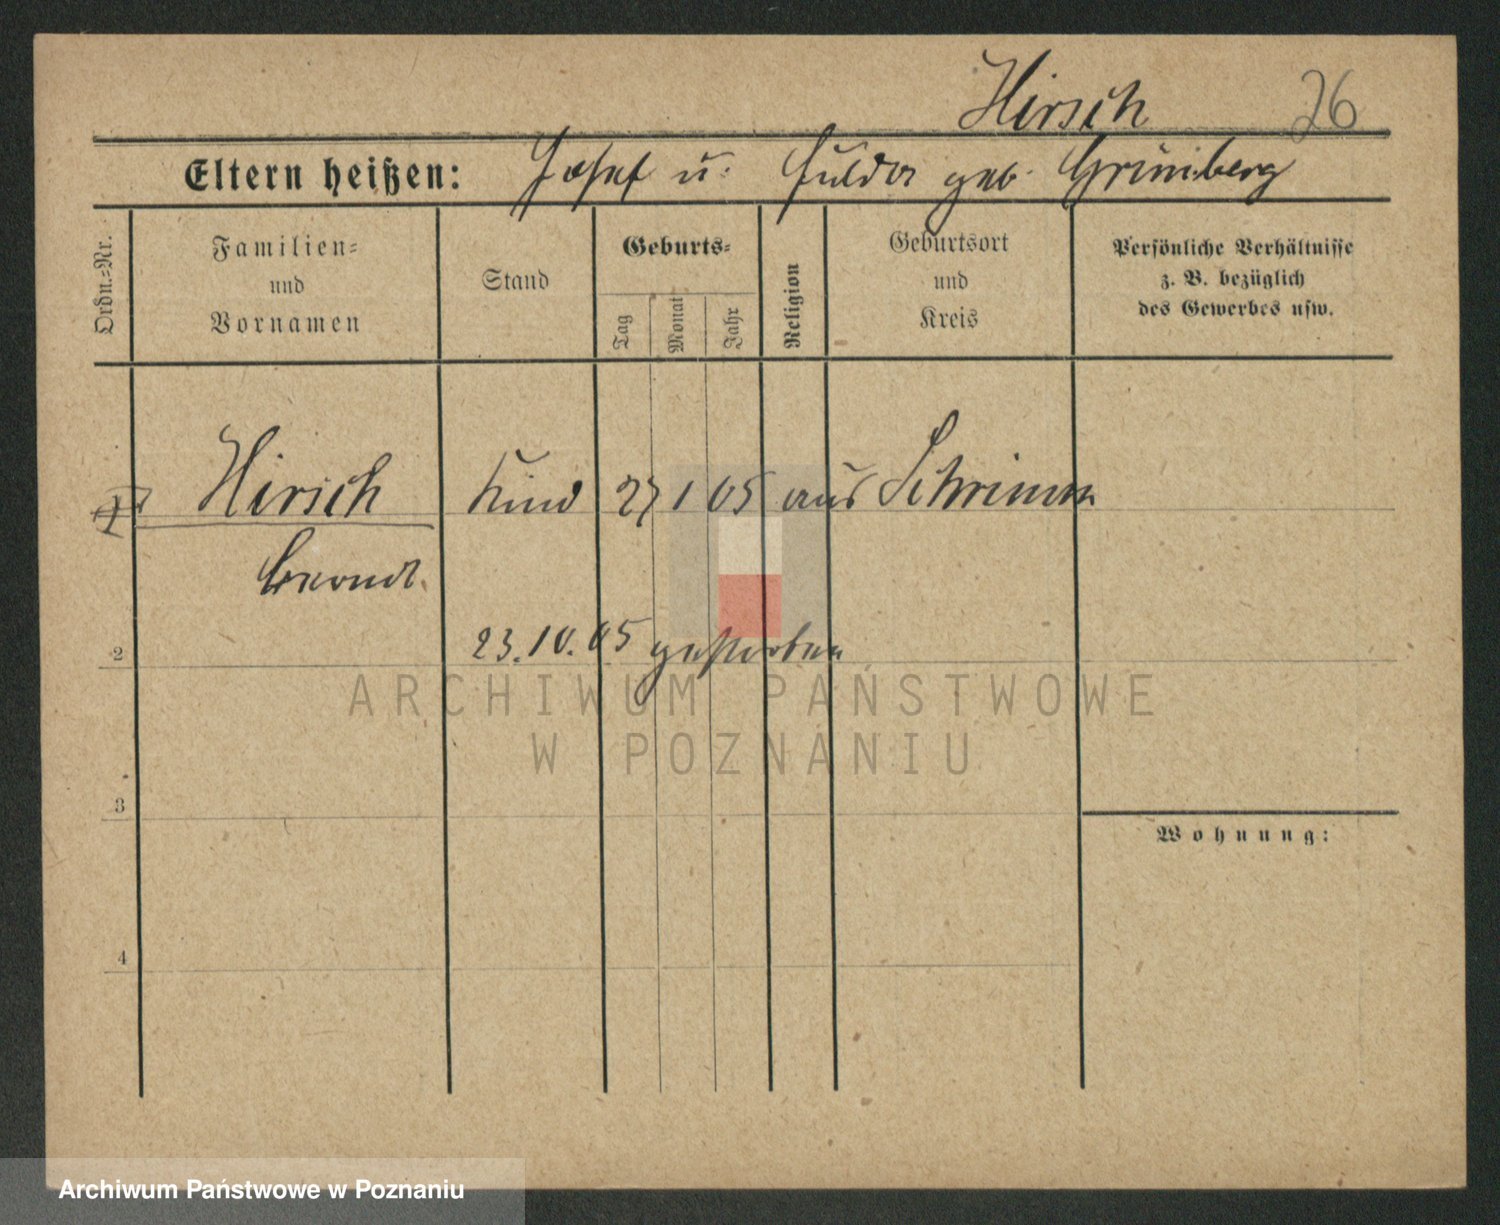 Hirsch 26
Eltern heißen: Josef u. Hulda geb. Grünberg
Ordn.=Nr.
Familien=
und
Vornamen
Stand
Geburts=
Tag
Monat
Jahr
Religion
Geburtsort
und
Kreis
Persönliche Verhältnisse
z. B. bezüglich
des Gewerbes usw.
Hirsch Kind 27 1 05 aus Schrimm
23.10.05 gestorben
2
3
Wohnung:
4
ARCHIWUM PAŃSTWOWE
W POZNANIU
Archiwum Państwowe w Poznaniu